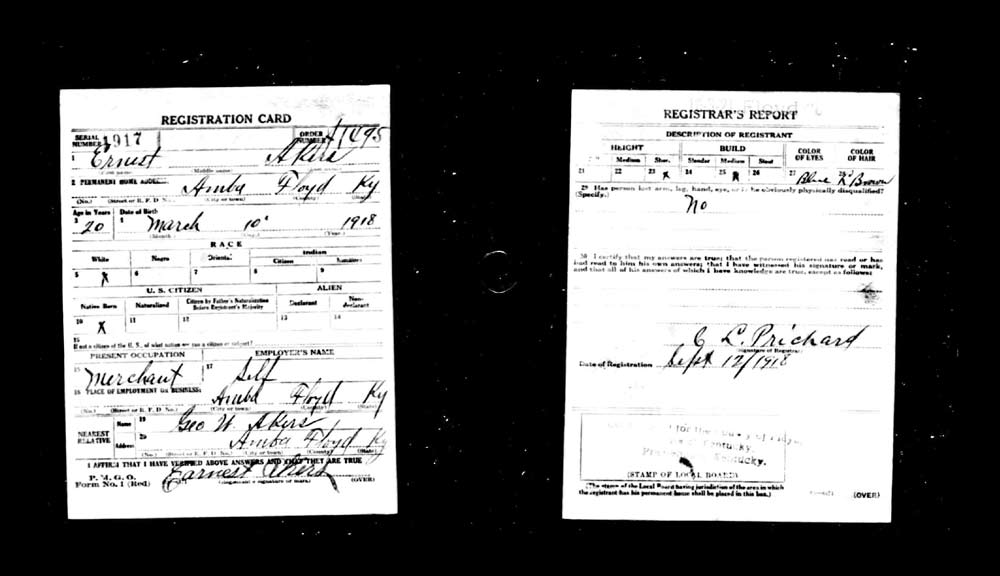 REGISTRATION CARD
SERIAL NUMBER 1917 ORDER NUMBER A1495
1 Ernest Akers
(First name) (Middle name)
2 PERMANENT HOME ADDRESS: Amba Floyd Ky
(No.) (Street or R. F. D. No.) (City or town) (County) (State)
Age in Years Date of Birth
3 20 4 March 10 1918
(Month.) (Day.) (Year.)
RACE
White Negro Oriental Indian
Citizen Noncitizen
5 X 6 7 8 9
U. S. CITIZEN ALIEN
Native Born Naturalized Citizen by Father's Naturalization Before Registrant's Majority Declarant Non-declarant
10 X 11 12 13 14
15 If not a citizen of the U. S., of what nation are you a citizen or subject?
PRESENT OCCUPATION EMPLOYER'S NAME
Merchant 17 Self
18 PLACE OF EMPLOYMENT OR BUSINESS: Amba Floyd Ky
(No.) (Street or R. F. D. No.) (City or town) (County) (State)
NEAREST RELATIVE Name 19 Geo W. Akers
Address 20 Amba Floyd Ky
(No.) (Street or R. F. D. No.) (City or town) (County) (State)
I AFFIRM THAT I HAVE VERIFIED ABOVE ANSWERS AND THAT THEY ARE TRUE
P. M. G. O.
Form No. 1 (Red) Earnest Akers
(Registrant's signature or mark) (OVER)
REGISTRAR'S REPORT
DESCRIPTION OF REGISTRANT
HEIGHT BUILD COLOR OF EYES COLOR OF HAIR
Medium Short Slender Medium Stout
21 22 23 X 24 25 X 26 27 Blue 28 Brown
29 Has person lost arm, leg, hand, eye, or is he obviously physically disqualified?
(Specify.) No
30 I certify that my answers are true; that the person registered has read or has
had read to him his own answers; that I have witnessed his signature or mark,
and that all of his answers of which I have knowledge are true, except as follows:
C L. Prichard
(Signature of Registrar)
Date of Registration Sept 12/1918
for the County of Floyd
Kentucky.
Kentucky.
(STAMP OF LOCAL BOARD)
(The stamp of the Local Board having jurisdiction of the area in which
the registrant has his permanent home shall be placed in this box.)
(OVER)